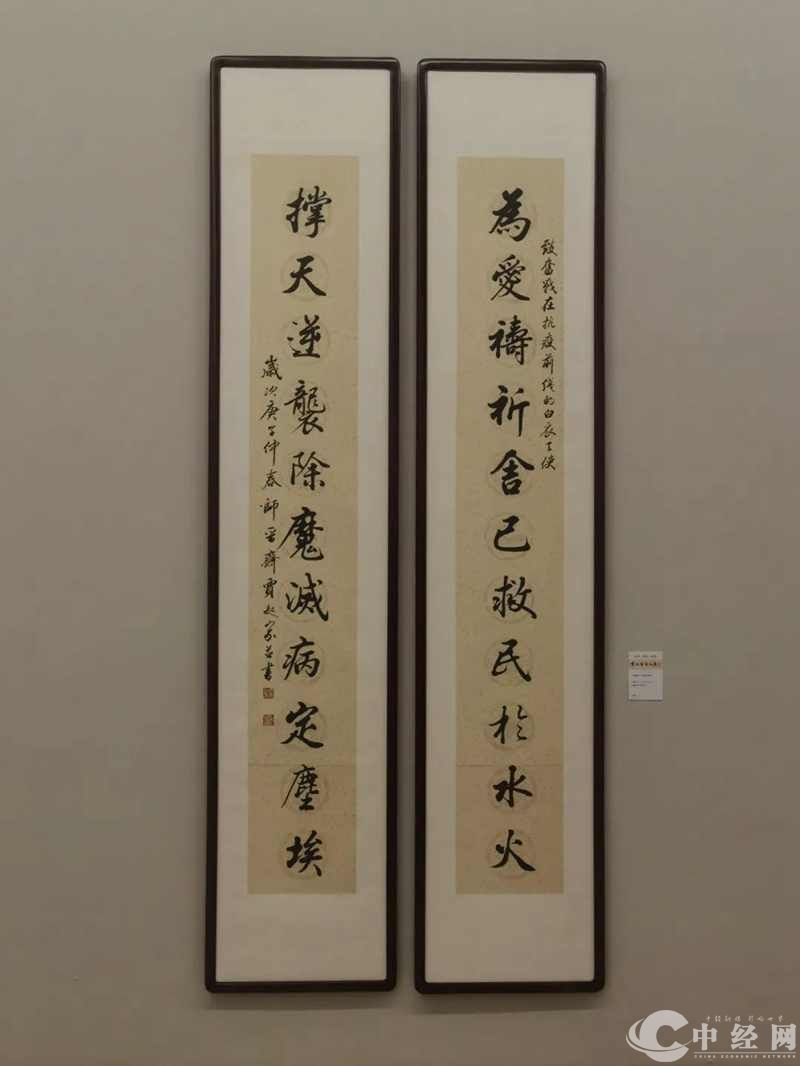 致奮戰在抗疫前线的白衣天使
為愛禱祈舍己救民於水火
撑天逆襲除魔滅病定塵埃
歲次庚子仲春師晋齋賈起家并書
中经网
CHINA ECONOMIC NETWORK